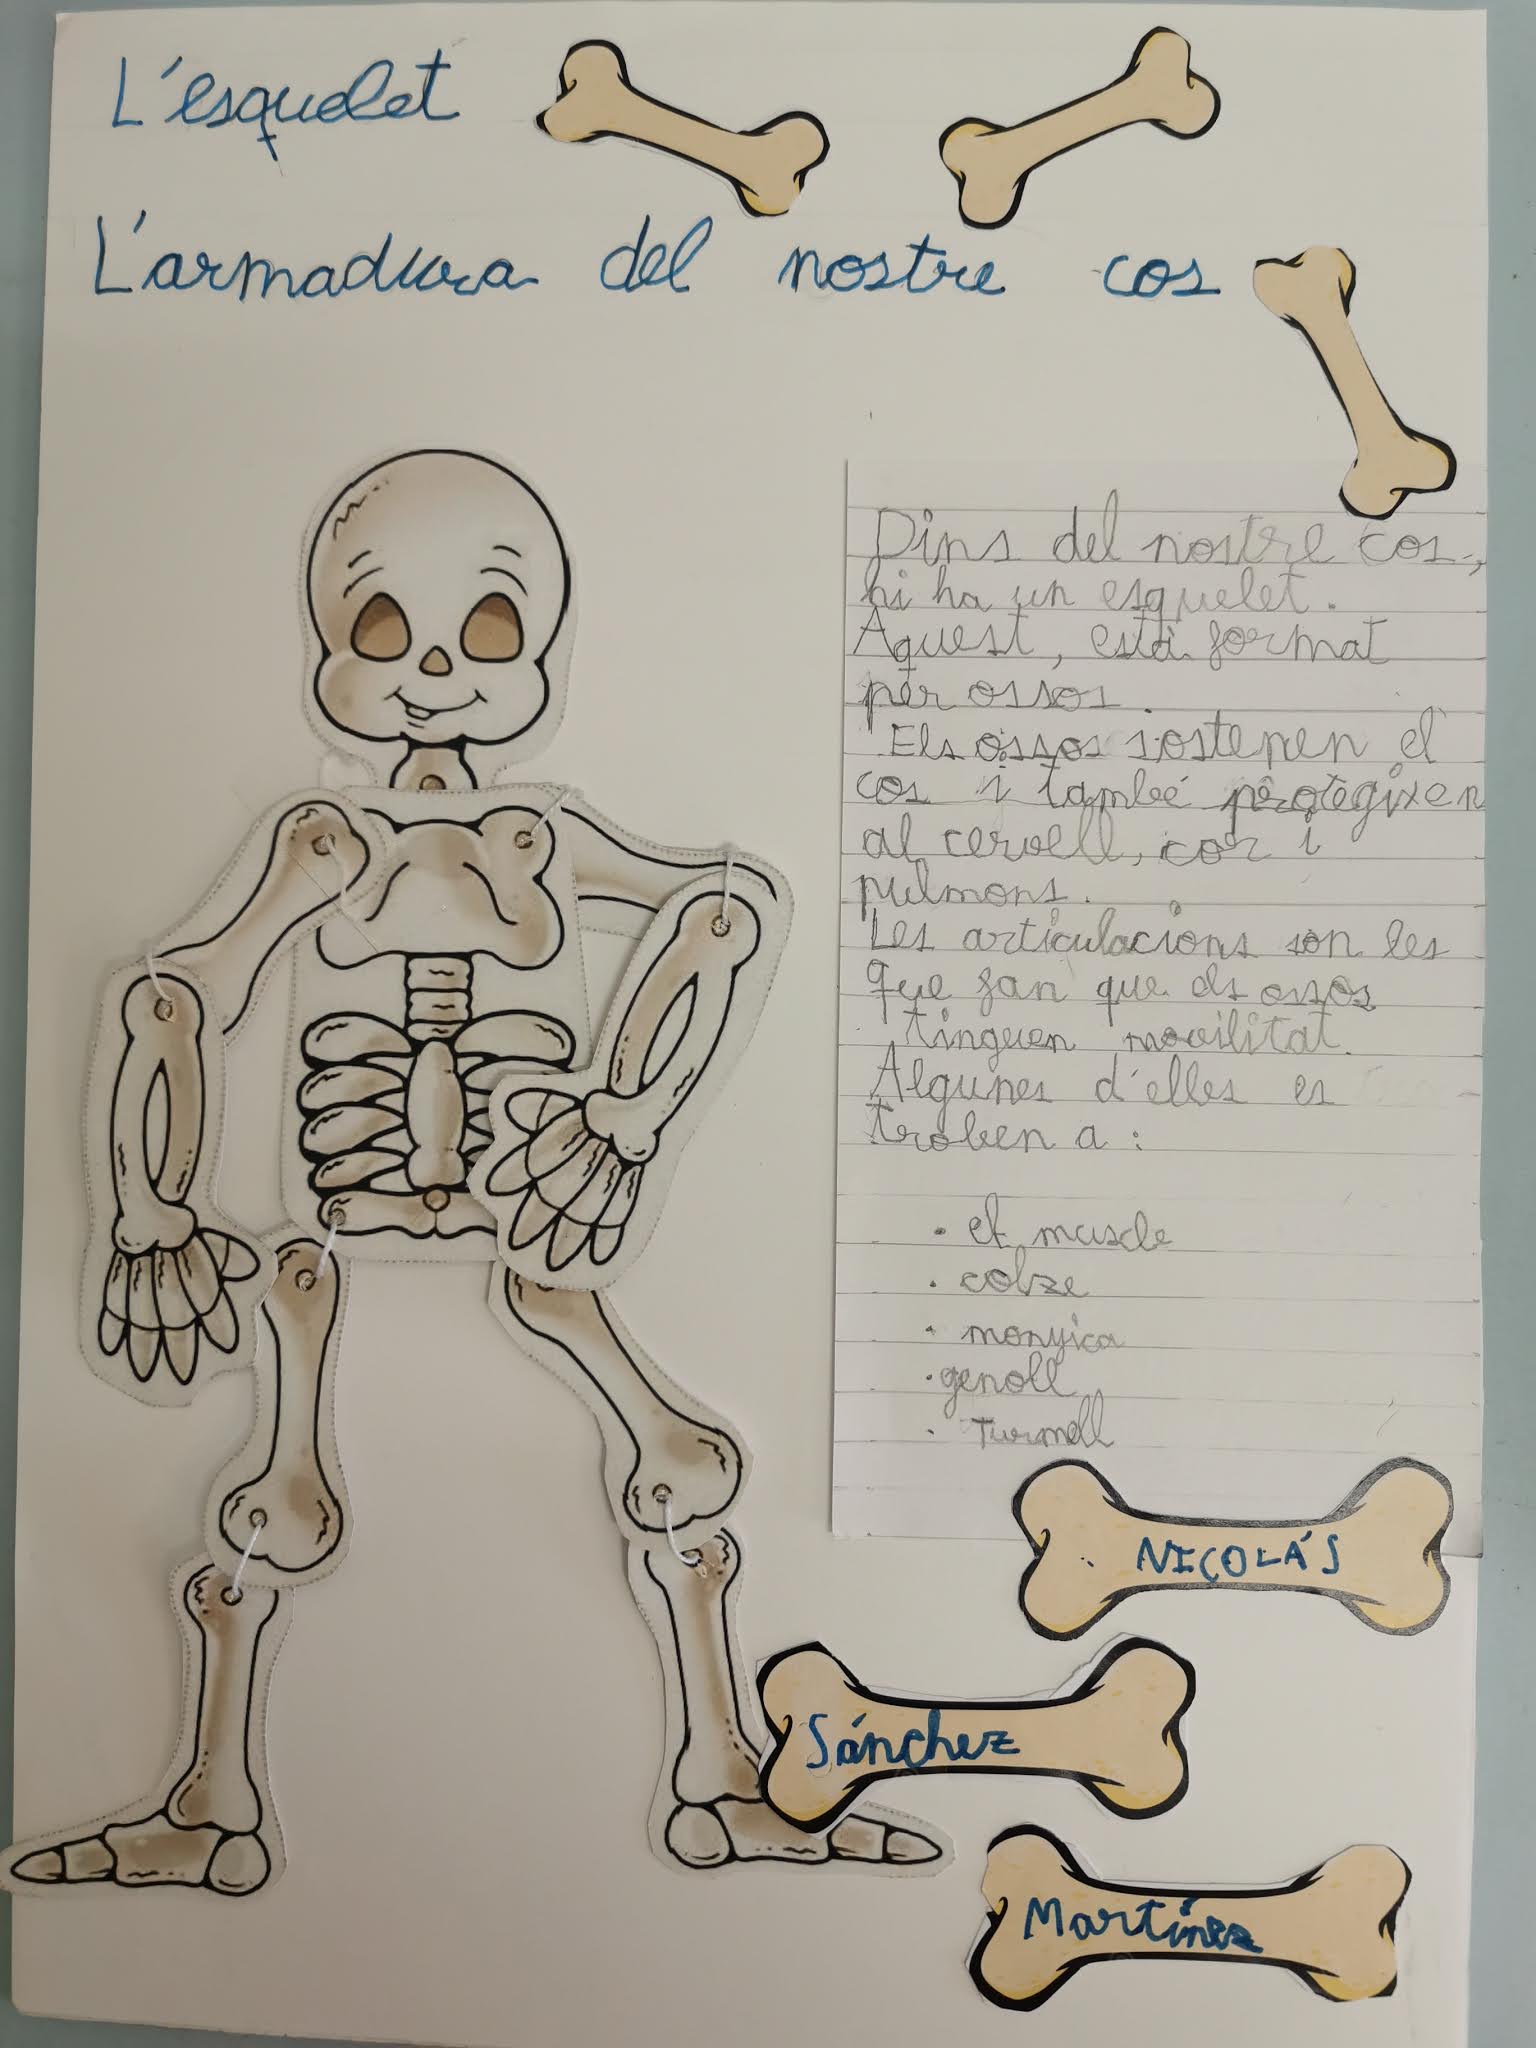 L'esquelet
L'armadura del nostre cos
Dins del nostre cos,
hi ha un esquelet.
Aquest, està format
per ossos.
Els ossos sostenen el
cos i també protegixen
al cervell, cor i
pulmons.
Les articulacions són les
que fan que els ossos
tinguen movilitat.
Algunes d'elles es
troben a:
· el muscle
· colze
· monyica
· genoll
· Turmell
NICOLÁS
Sánchez
Martínez